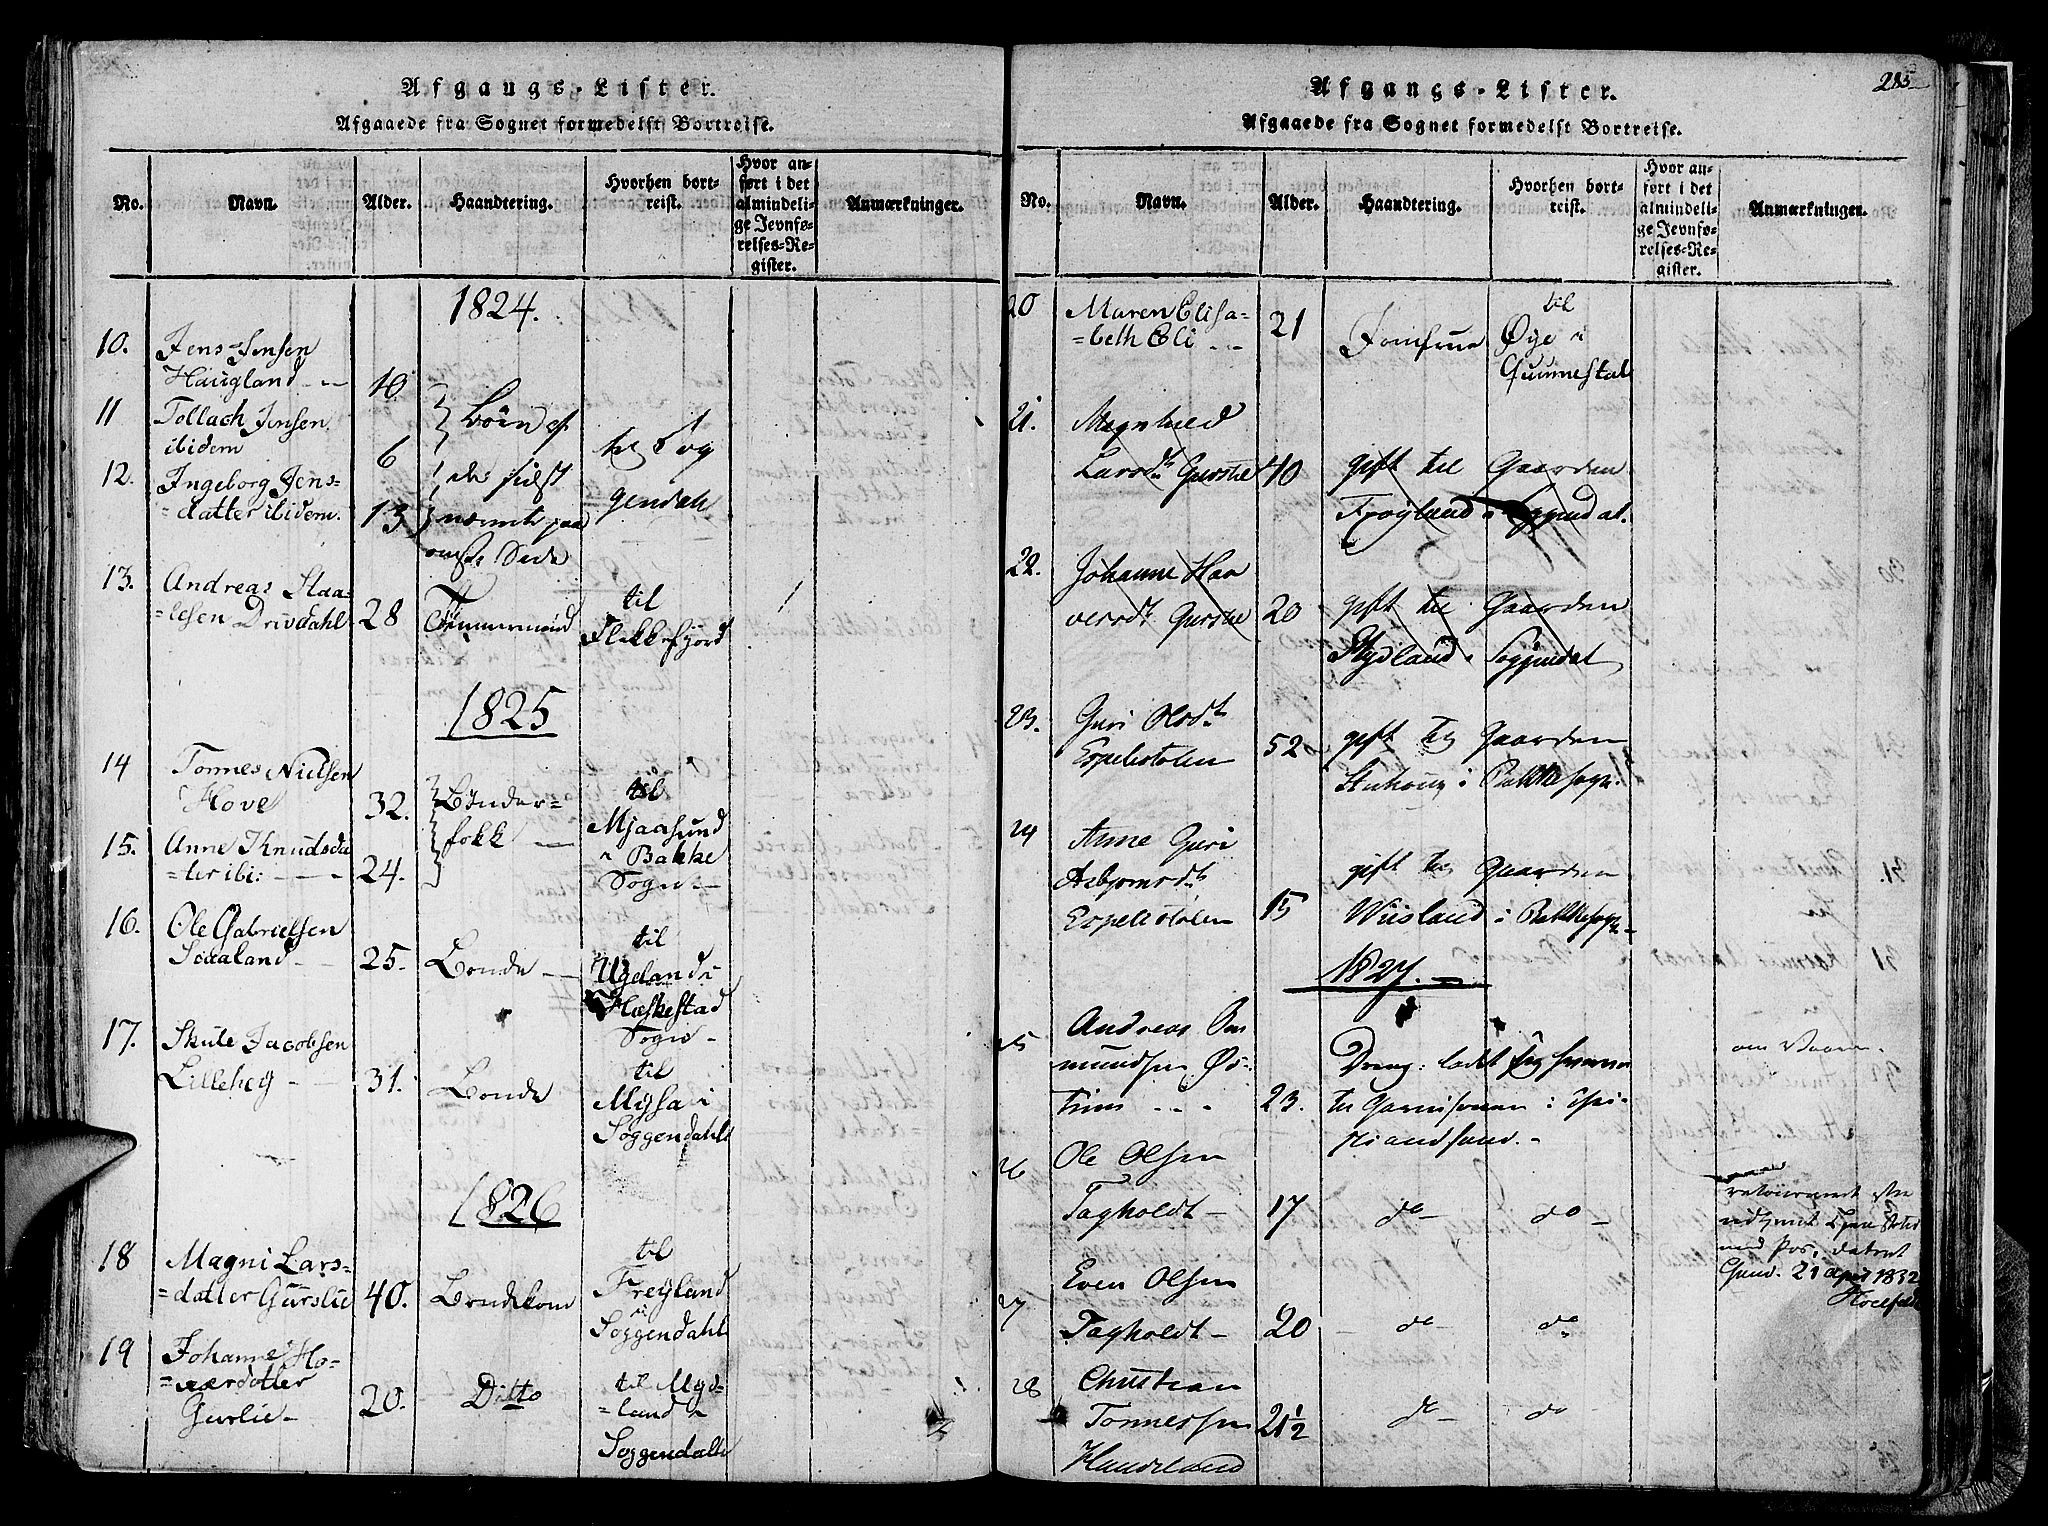 Afgangs-Lister.
Afgaaede fra Sognet formedelst Bortreise.
No. Navn. Alder. Haandtering. Hvorhen bortreist. Hvor anført i det almindelige Jevnførelses-Register. Anmærkninger.
1824.
10. Jens Jensen
Haugland 10
11 Tollach Jensen
ibidem 6
12. Ingeborg Jens-
datter ibidem. 13
Børn af
de sidst
nævnte paa
Side
til Sog
gendal
13. Andreas Staa-
lesen Drivdahl 28 Tømmermand til
Flekkefjord
1825
14 Tonnes Nielsen
Hove 32. Bønder-
folk til
Mjaasund
i Bakke
Sogn
15. Anne Knudsda
ter ibi: 24.
16. Ole Gabrielsen
Sæland 25. Bonde til
Ugeland i
Heskestad
Sogn
17. Skule Jacobsen
Lillehey 31. Bonde til
Mysa i
Soggendahl
1826
18 Magni Lars-
datter Gurslie 40. Bondekone til
Freyland
i
Soggendahl
19 Johanne Ho-
værdatter
Gurslie 20. Ditto til Myd-
land i
Soggendahl
Afgangs-Lister. 285
Afgaaede fra Sognet formedelst Bortreise.
No. Navn. Alder. Haandtering. Hvorhen bortreist. Hvor anført i det almindelige Jevnførelses-Register. Anmærkninger.
20 Maren Elisa-
beth Eli 21 Jomfrue til
Øye i
Qvinnesdal
21. Magnhild
Larsdt. Gurslie 40 gift til Gaarden
Frøyland i Soggendal.
22. Johanne Haa
versdt. Gurslie 20 gift til Gaarden
Mydland i Soggendal
23. Guri Olsdt.
Espelistølen 52 gift til Gaarden
i Bakkesogn.
24 Anne Guri
Asbjørnsdt.
Espelistølen 15 gift til Gaarden
i Bakkesogn
1827.
25 Andreas Om
mundsen 23. Dreng: ladt sig
til Garnisonen i Chri-
stiansand.
26 Ole Olsen
Tagholdt 17 do do
retourneret
med
21 April 1832
27 Even Olsen
Tagholdt 20 do do
28 Christian
Tonnessen
Handeland 21½ do do